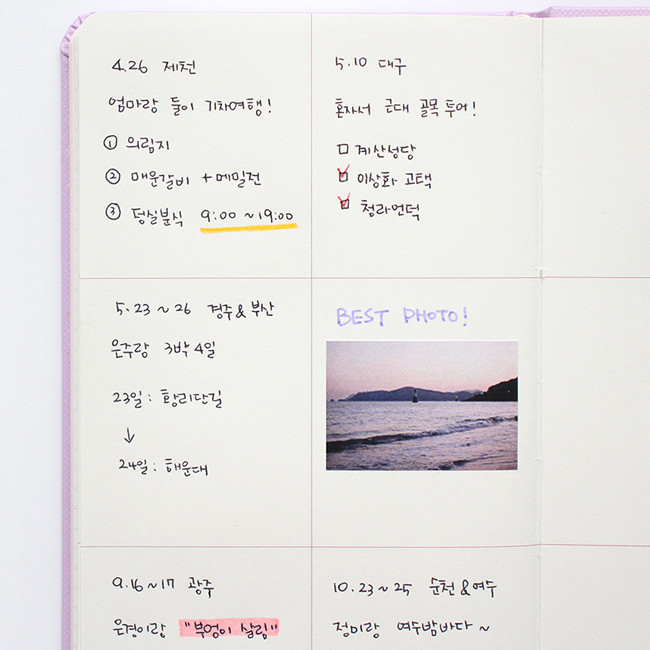 4.26 제천
엄마랑 둘이 기차여행!
① 의림지
② 매운갈비 + 메밀전
③ 덩실분식 9:00 ~ 19:00
5.10 대구
혼자서 근대 골목 투어!
계산성당
이상화 고택
청라언덕
5.23 ~ 26 경주 & 부산
은주랑 3박 4일
23일 : 황리단길
↓
24일 : 해운대
BEST PHOTO!
9.16 ~ 17 광주
은경이랑 "부엉이 살롱"
10.23 ~ 25 순천 & 여수
정미랑 여수밤바다 ~